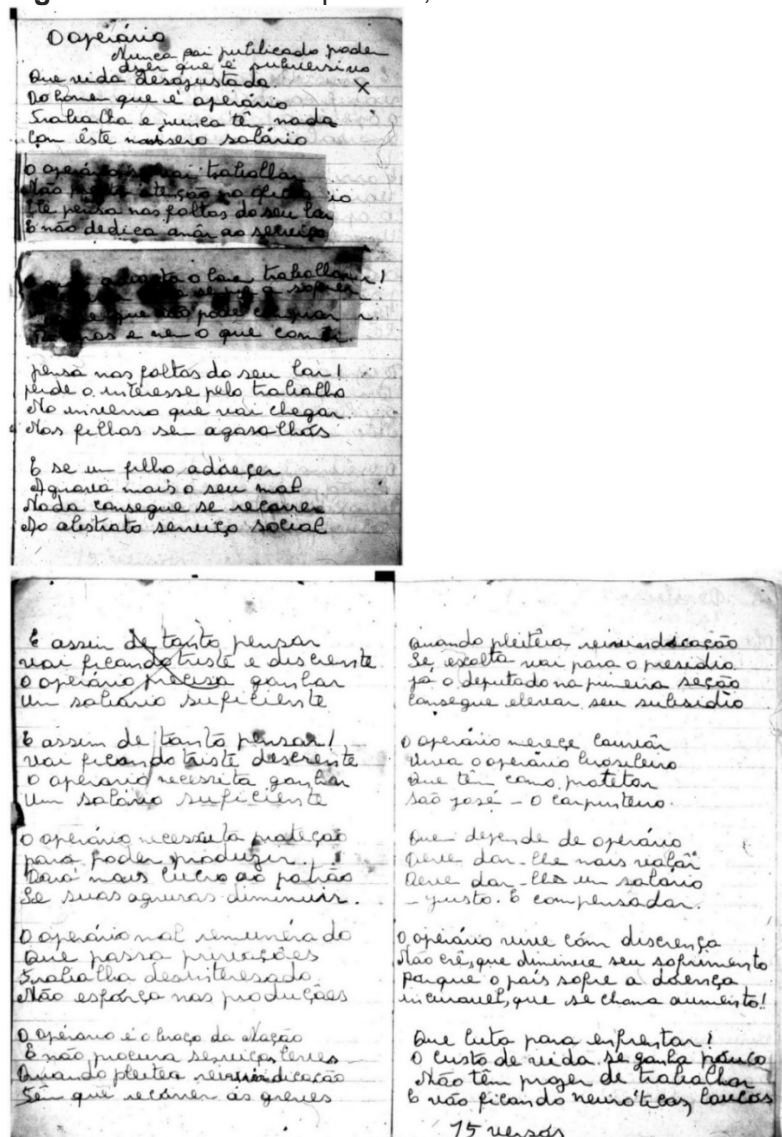 O operário
Nunca foi publicado podem
dizer que é subversivo
Que vida desajustada. X
Do homem que é operário
Trabalha e nunca têm nada
Com êste mísero salário
O operário vai trabalhar
Não atenção no
Ele pensa nas faltas do seu lar
E não dedica amôr ao serviço
adianta o trabalhar!
a sofrer
que não pode comprar
e nem o que comer.
pensa nas faltas do seu lar!
perde o interesse pelo trabalho
No inverno que vai chegar
Nos filhos sem agasalhos
E se um filho adoeçer
Agrava mais o seu mal
Nada consegue se recorrer
Ao abstrato serviço social
E assim de tanto pensar
vai ficando triste e discrente
O operário precisa ganhar
Um salário suficiente
E assim de tanto pensar!
vai ficando triste descrente
O operário necessita ganhar
Um salário suficiente
O operário necessita proteção
para poder produzir.
Dará mais lucro ao patrão
Se suas agruras diminuir.
O operário mal remunerado
Que passa privações
Trabalha desinteresado
Não esforça nas produções
O operário é o braço da Nação
E não procura serviços leves
Quando pleitea reivindicação
Têm que recorrer ás greves
Quando pleiteia reivindicação
Se, escolta vai para o presidio
já o deputado na primeira seção
Consegue elevar seu subsidio
O operário mereçe louvôr
Viva o operário brasileiro
Que têm como protetor
São josé – o carpinteiro.
Quem depende de operário
Deve dar-lhe mais valôr
Deve dar-lhes um salário
– justo. E compensador.
O operário vive com discrença
Não crê, que diminue seu sofrimento
Porque o país sofre a doença
incuravel, que se chama aumento!
Que luta para enfrentar!
O custo de vida. Se ganha pouco
Não têm prazer de trabalhar
E vão ficando neuróticos, loucos
15 versos